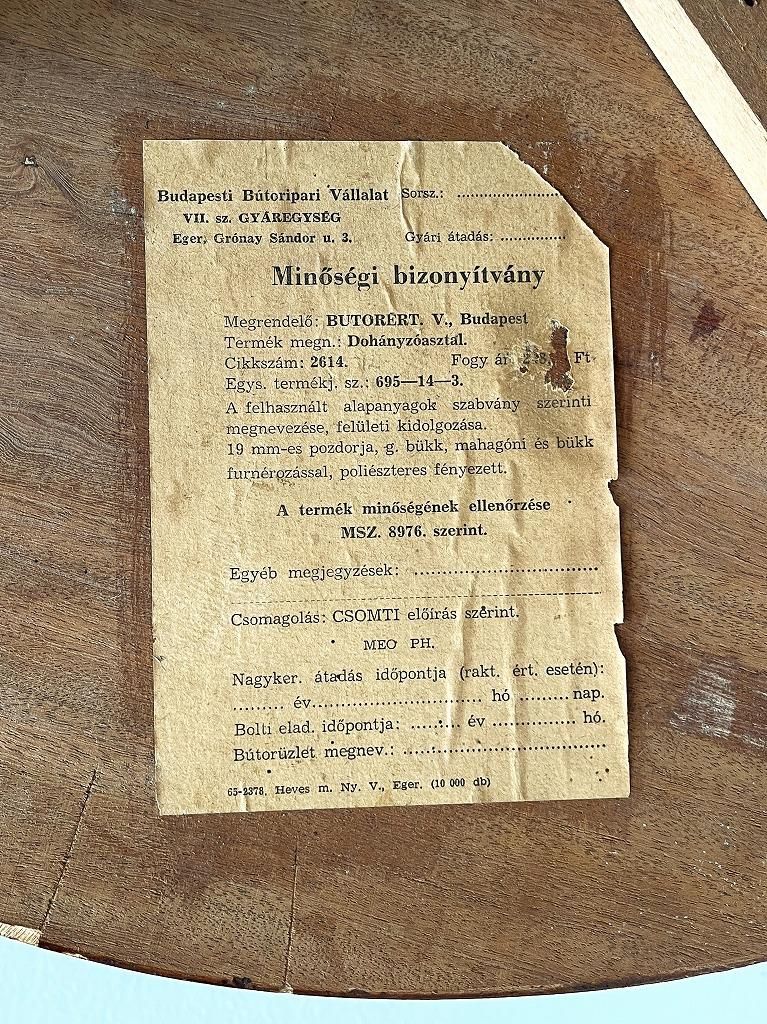 Budapesti Bútoripari Vállalat Sorsz.: ........................
VII. sz. GYÁREGYSÉG
Eger, Grónay Sándor u. 3. Gyári átadás: ...............
Minőségi bizonyítvány
Megrendelő: BUTORÉRT. V., Budapest
Termék megn.: Dohányzóasztal.
Cikkszám: 2614. Fogy ár Ft
Egys. termékj. sz.: 695—14—3.
A felhasznált alapanyagok szabvány szerinti
megnevezése, felületi kidolgozása.
19 mm-es pozdorja, g. bükk, mahagóni és bükk
furnérozással, poliészteres fényezett.
A termék minőségének ellenőrzése
MSZ. 8976. szerint.
Egyéb megjegyzések: ........................................
Csomagolás: CSOMTI előírás szerint.
MEO PH.
Nagyker. átadás időpontja (rakt. ért. esetén):
......... év.................................... hó ......... nap.
Bolti elad. időpontja: ......... év .................. hó.
Bútorüzlet megnev.: ............................................
65-2378, Heves m. Ny. V., Eger. (10 000 db)